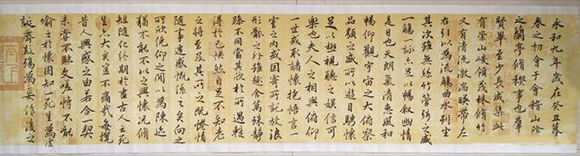 永和九年歲在癸丑暮
春之初會于會稽山陰
之蘭亭脩禊事也羣
賢畢至少長咸集此地
有崇山峻嶺茂林脩竹
又有清流激湍暎帶左
右引以為流觴曲水列坐
其次雖無絲竹管弦之盛
一觴一詠亦足以暢敘幽情
是日也天朗氣清惠風和
暢仰觀宇宙之大俯察
品類之盛所以遊目騁懷
足以極視聽之娛信可
樂也夫人之相與俯仰
一世或取諸懷抱悟言一
室之內或因寄所託放浪
形骸之外雖趣舍萬殊靜
躁不同當其欣於所遇輒
得於己怏然自足不知老
之將至及其所之既惓情
隨事遷感慨係之矣向之
所欣俛仰之間以為陳迹
猶不能不以之興懷況脩
短隨化終期於盡古人云死
生亦大矣豈不痛哉每攬
昔人興感之由若合一契
未嘗不臨文嗟悼不能
喻之於懷固知一死生為虛
誕齊彭殤為妄作後之